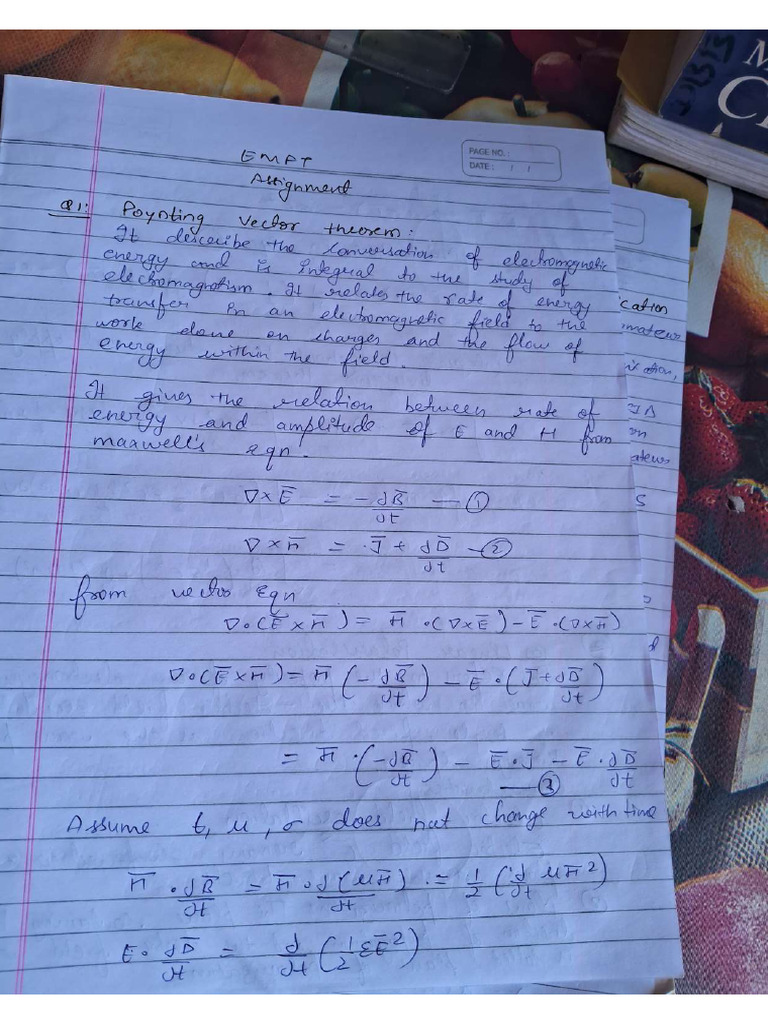 EMFT
PAGE NO.:
DATE: / /
Assignment
Q1: Poynting Vector theorem:
It describe the conversation of electromagnetic
energy and is integral to the study of
electromagnetism. It relates the rate of energy
transfer in an electromagnetic field to the
work done on charges and the flow of
energy within the field.
It gives the relation between rate of
energy and amplitude of E and H from
maxwell's eqn.
∇×E̅ = -∂B̅/∂t — ①
∇×H̅ = J̅ + ∂D̅/∂t — ②
from vector Eqn
∇•(E̅×H̅) = H̅•(∇×E̅) - E̅•(∇×H̅)
∇•(E̅×H̅) = H̅(-∂B̅/∂t) - E̅•(J̅+∂D̅/∂t)
= H̅•(-∂B̅/∂t) - E̅•J̅ - E̅•∂D̅/∂t
— ③
Assume t, μ, σ does not change with time
H̅•∂B̅/∂t = H̅•∂(μH̅)/∂t = 1/2(∂/∂t μH̅²)
E•∂D̅/∂t = ∂/∂t(1/2 εE̅²)
cation